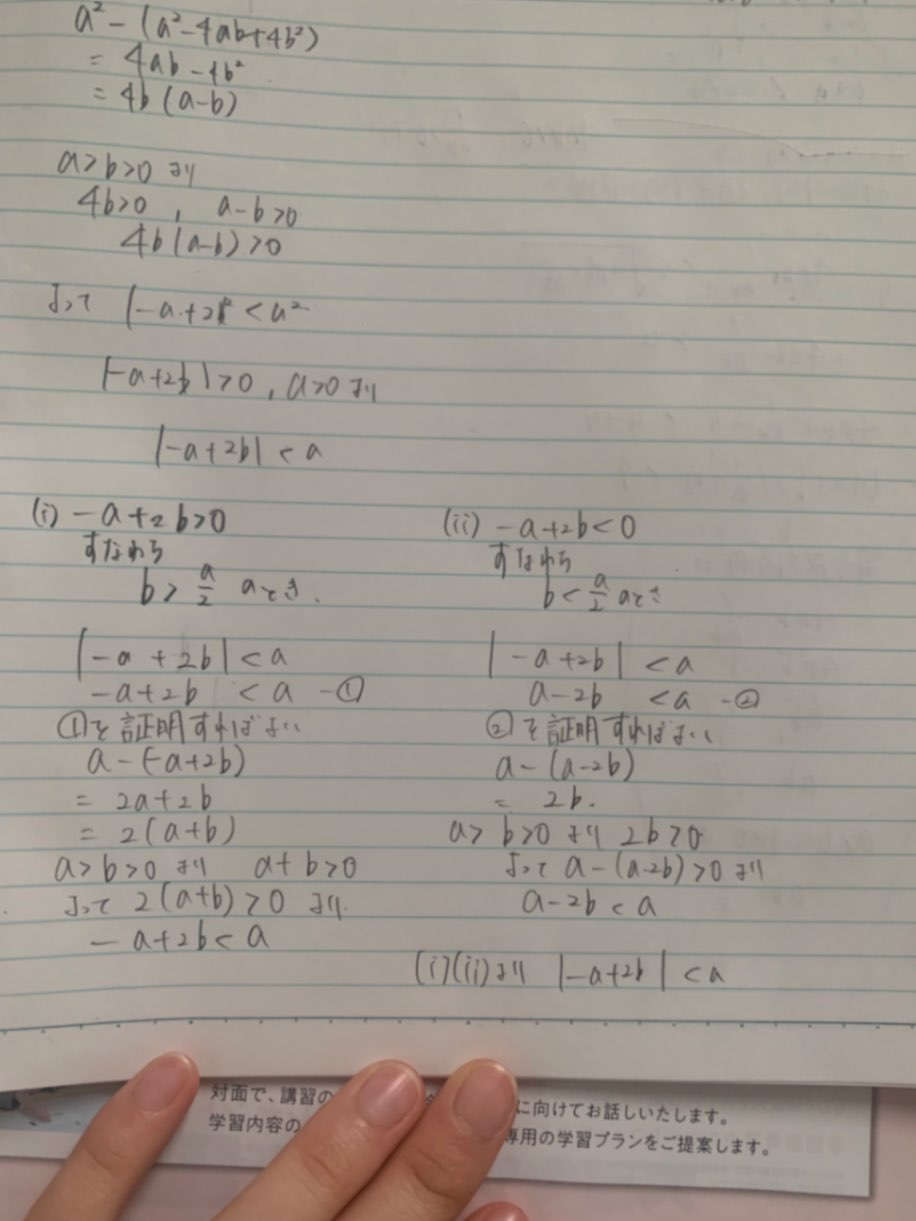 a²-(a²-4ab+4b²)
= 4ab-4b²
= 4b(a-b)
a>b>0 より
4b>0 , a-b>0
4b(a-b)>0
よって |-a+2 ² <a²
|-a+2b|>0 , a>0 より
|-a+2b| < a
(i) -a+2b>0
すなわち
b> a/2 のとき.
|-a+2b|<a
-a+2b <a -①
①を証明すればよい
a-(-a+2b)
= 2a+2b
= 2(a+b)
a>b>0 より a+b>0
よって 2(a+b)>0 より.
-a+2b<a
(ii) -a+2b<0
すなわち
b< a/2 のとき
|-a+2b| <a
a-2b <a -②
②を証明すればよい
a-(a-2b)
= 2b.
a>b>0 より 2b>0
よって a-(a-2b)>0 より
a-2b<a
(i)(ii)より |-a+2b| <a
対面で、講習の に向けてお話しいたします。
学習内容の 専用の学習プランをご提案します。